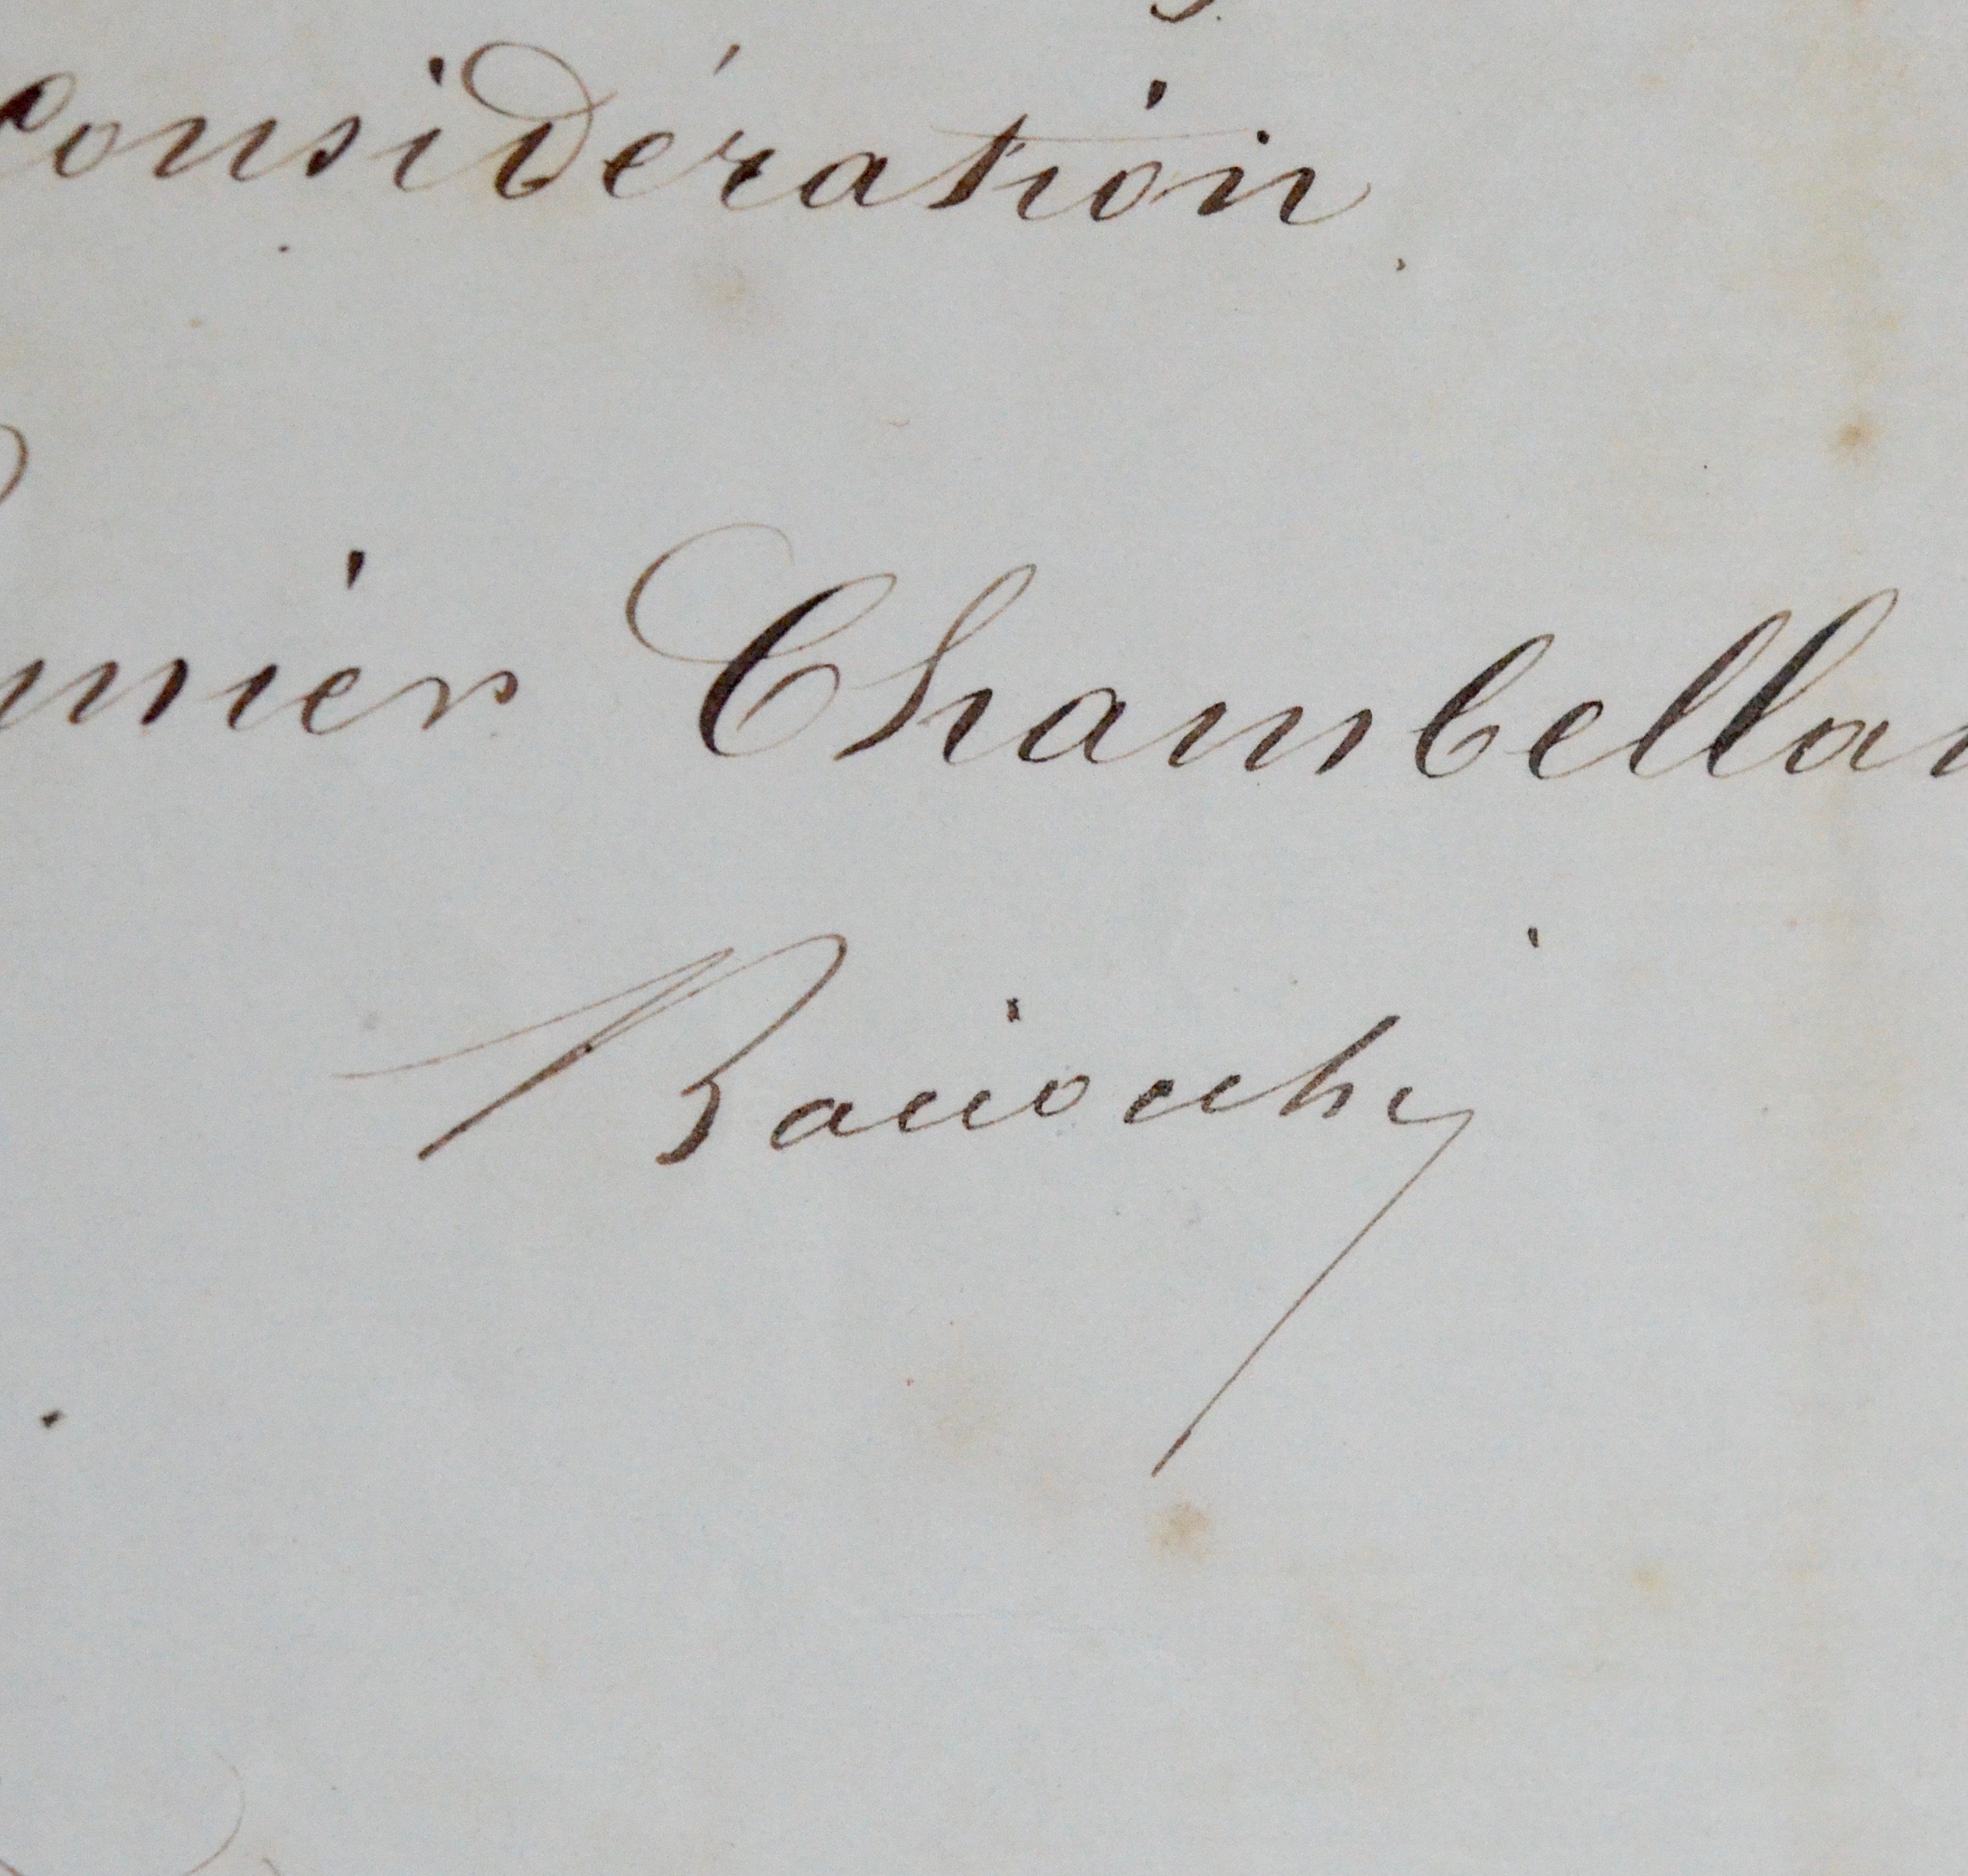 Considération
mier Chambellan
Bacciochi